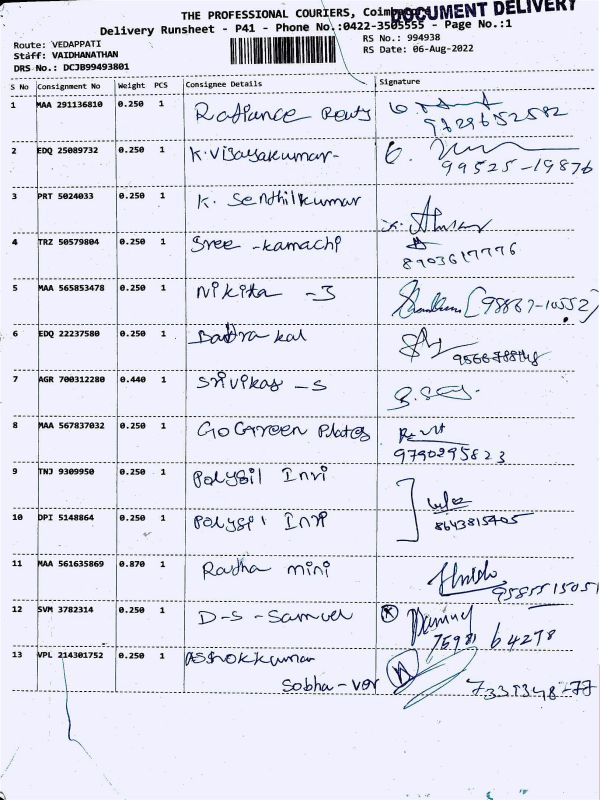 THE PROFESSIONAL COURIERS,
DOCUMENT DELIVERY
Delivery Runsheet - P41 - Phone No.:0422-3505555 - Page No.:1
Route: VEDAPPATI
RS No.: 994938
Staff: VAIDHANATHAN
RS Date: 06-Aug-2022
DRS No.: DCJB99493801
S No Consignment No Weight PCS Consignee Details Signature
1 MAA 291136810 0.250 1 Radiance
9629652582
2 EDQ 25089732 0.250 1 K.Vijayakumar-
99525-19876
3 PRT 5024033 0.250 1 K. Senthilkumar
4 TRZ 50579804 0.250 1 Sree -kamachi
8903617776
5 MAA 565853478 0.250 1 Nikita -J
[98867-10552]
6 EDQ 22237580 0.250 1 Badra kal
7 AGR 700312280 0.440 1 Srivikas -S
8 MAA 567837032 0.250 1 GoGreen Plates
9790295823
9 TNJ 9309950 0.250 1 Polygil Invi
10 DPI 5148864 0.250 1 Invi
8643815405
11 MAA 561635869 0.870 1 Radha mini
9585515051
12 SVM 3782314 0.250 1 D-S-Samuel
75981 64278
13 VPL 214301752 0.250 1 Ashokkumar
Sobha-ver